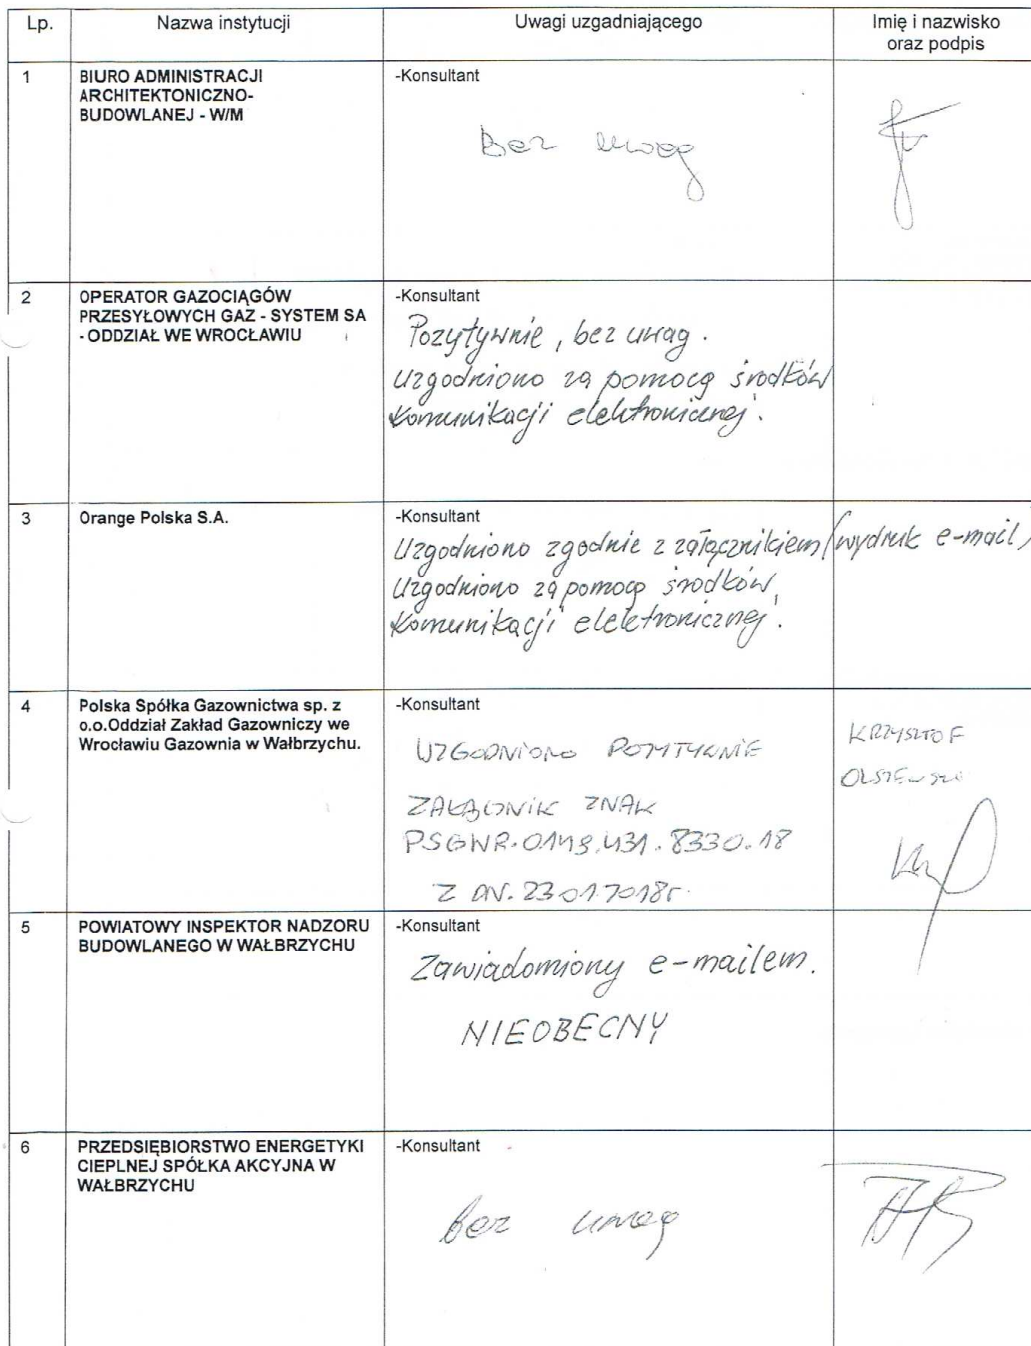 Lp.
Nazwa instytucji
Uwagi uzgadniającego
Imię i nazwisko
oraz podpis
1
BIURO ADMINISTRACJI
ARCHITEKTONICZNO-
BUDOWLANEJ - W/M
-Konsultant
Bez uwag
2
OPERATOR GAZOCIĄGÓW
PRZESYŁOWYCH GAZ - SYSTEM SA
- ODDZIAŁ WE WROCŁAWIU
-Konsultant
Pozytywnie, bez uwag.
Uzgodniono za pomocą środków
komunikacji elektronicznej.
3
Orange Polska S.A.
-Konsultant
Uzgodniono zgodnie z załącznikiem (wydruk e-mail)
Uzgodniono za pomocą środków
komunikacji elektronicznej.
4
Polska Spółka Gazownictwa sp. z
o.o.Oddział Zakład Gazowniczy we
Wrocławiu Gazownia w Wałbrzychu.
-Konsultant
UZGODNIONO POZYTYWNIE
ZAŁĄCZNIK ZNAK
PSGWR.0149.431.8330.18
Z DN. 23.01.2018r.
KRZYSZTOF
OLSZEWSKI
5
POWIATOWY INSPEKTOR NADZORU
BUDOWLANEGO W WAŁBRZYCHU
-Konsultant
Zawiadomiony e-mailem.
NIEOBECNY
6
PRZEDSIĘBIORSTWO ENERGETYKI
CIEPLNEJ SPÓŁKA AKCYJNA W
WAŁBRZYCHU
-Konsultant
bez uwag